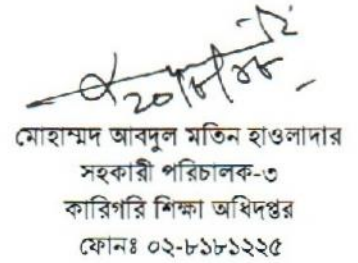 মোহাম্মদ আবদুল মতিন হাওলাদার
সহকারী পরিচালক-৩
কারিগরি শিক্ষা অধিদপ্তর
ফোনঃ ০২-৮১৮১২২৫